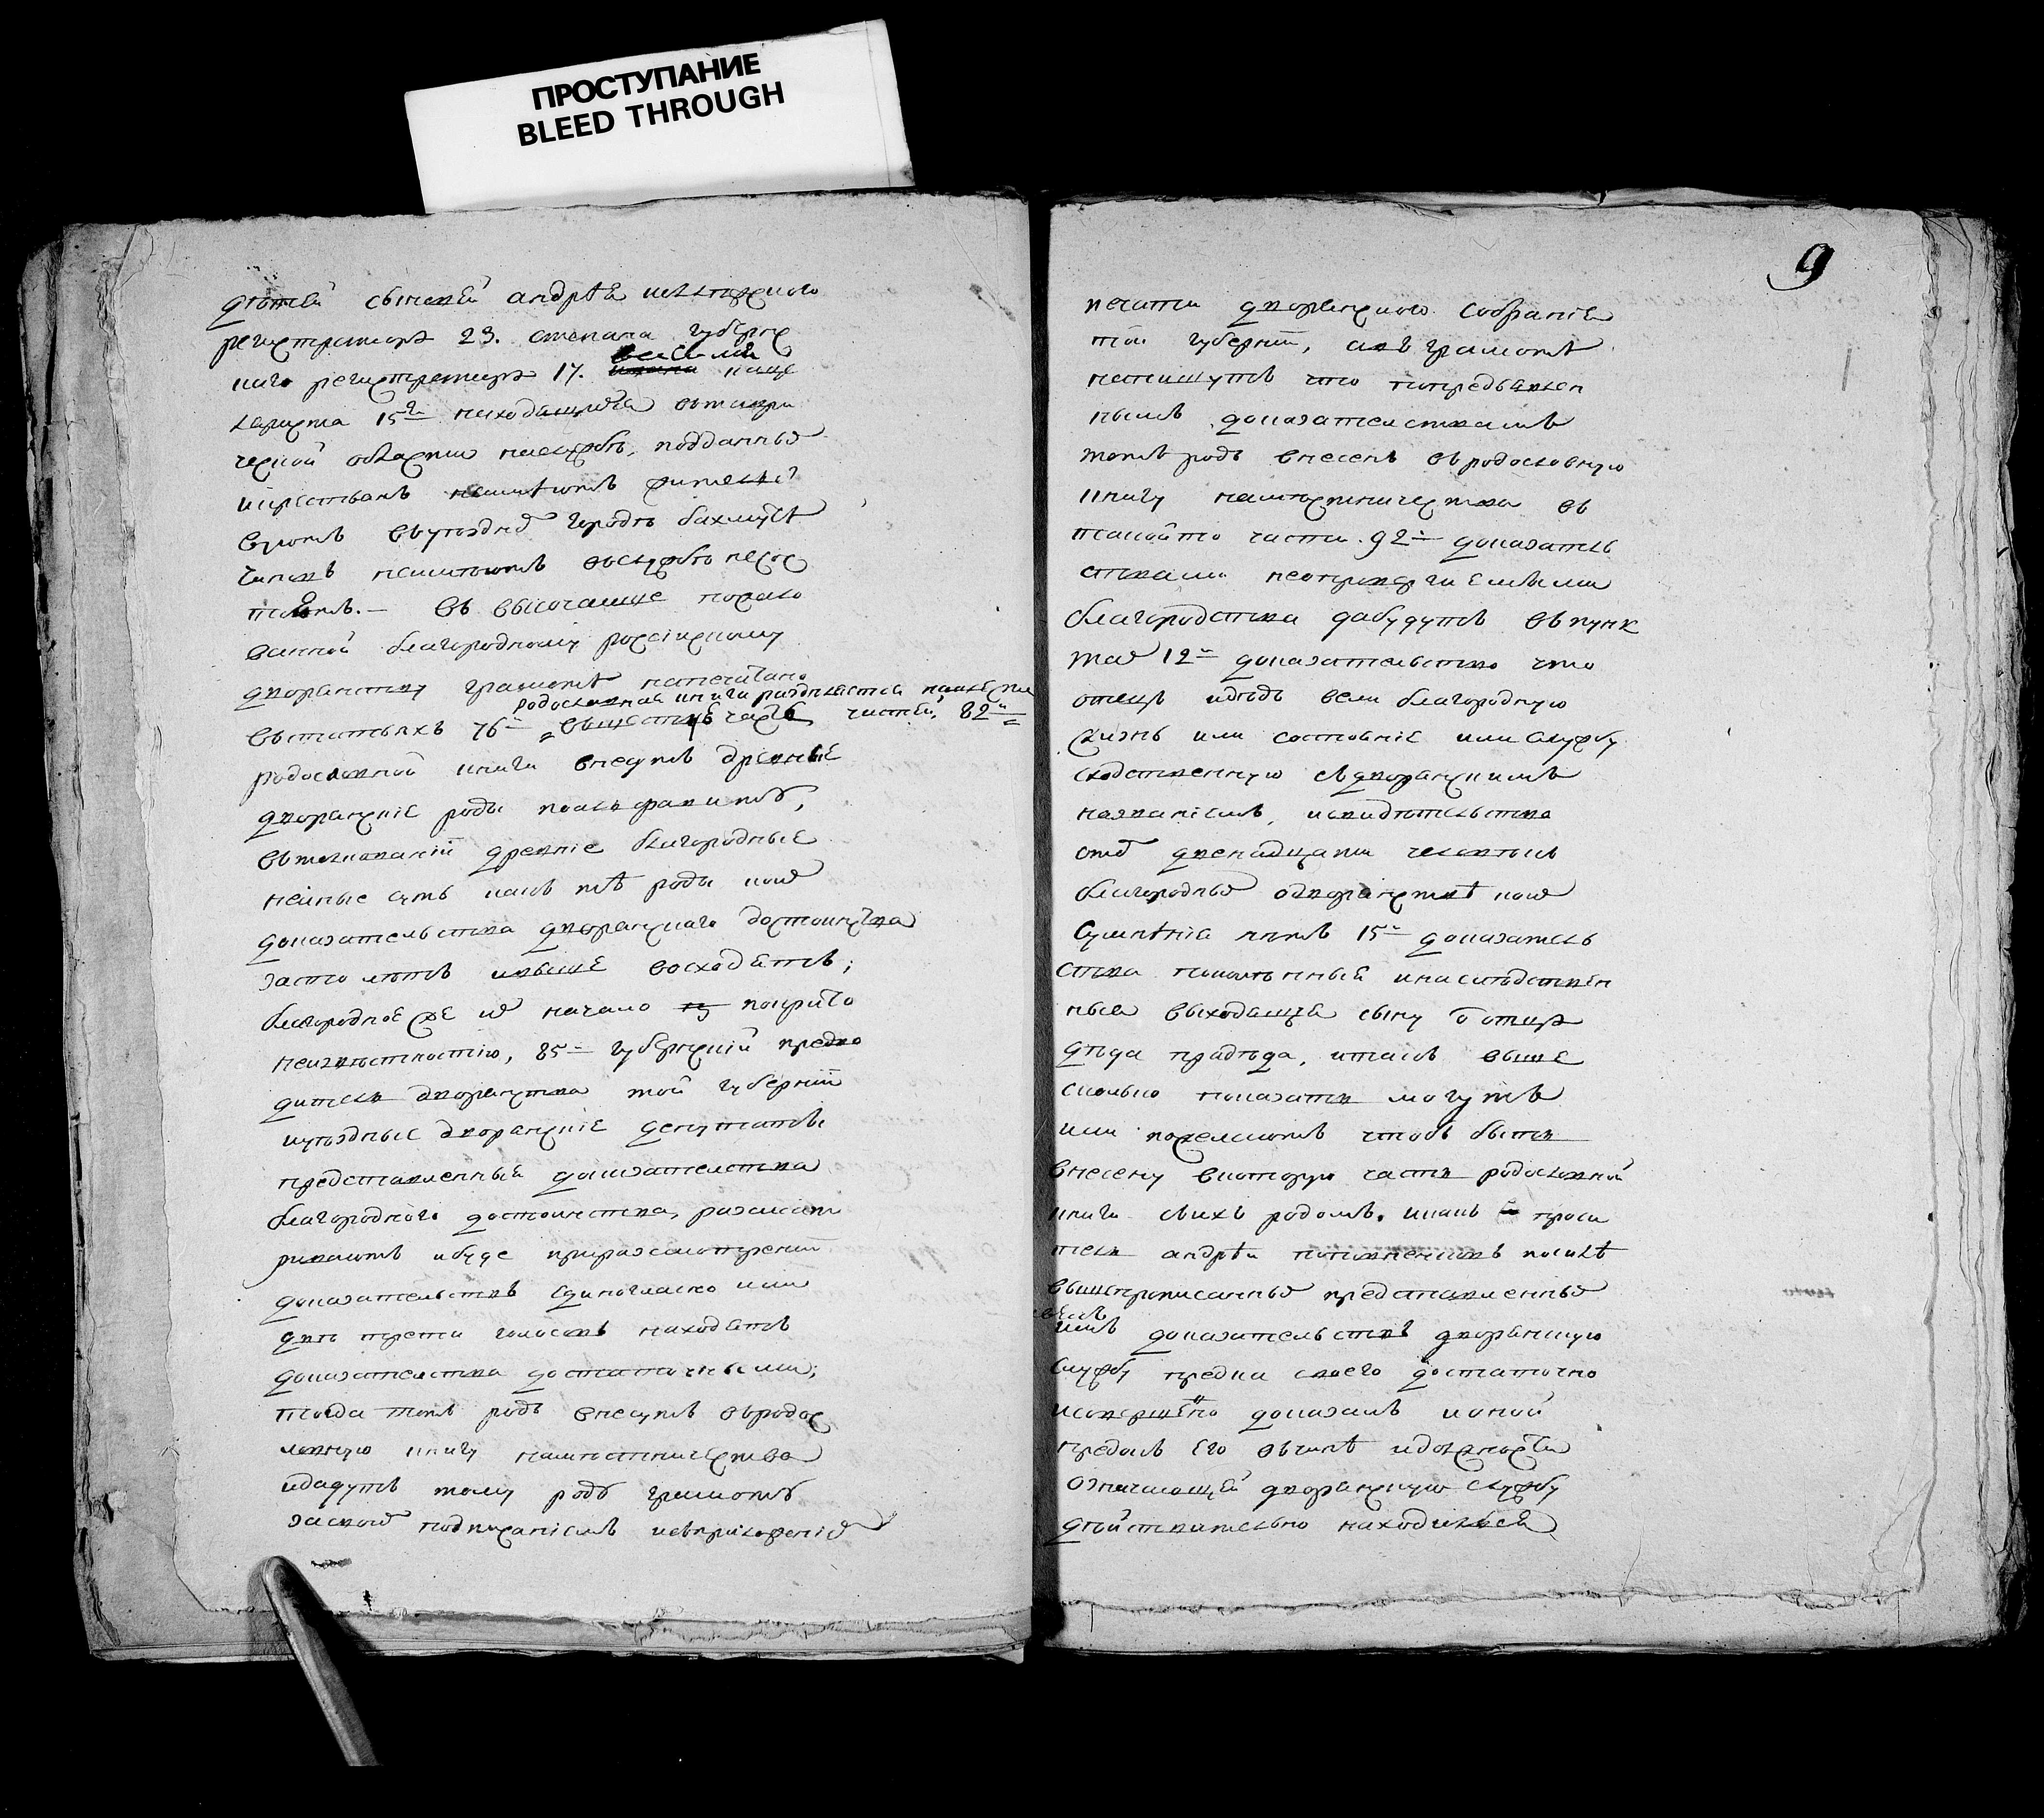 ПРОСТУПАНИЕ
BLEED THROUGH
детей сыновей андрея коллежского
регистратора 23. степана губернс
каго регистратора 17. василия канце
лариста 15ти находящихся втаври
ческой области наслужбе, подданных
икрестьянъ неимѣютъ жителст
вуютъ вуездномъ городѣ бахмутѣ
чиновъ неимѣютъ вслужбе несос
тоятъ. — Въ высочайше пожало
ванной благородному россискому
дворянству грамотѣ напечатано
родословная книга разделяется нашесть
встатьяхъ 76й частей, 82й
родословной книги внесутъ древные
дворянские роды
втолкованіи древніе благородные
неиные суть какъ тѣ роды коихъ
доказательства дворянскаго достоинства
засто лѣтъ ивыше восходятъ;
благородное же ихъ начало покрыто
неизвѣстностію, 85 губернский предво
дитель дворянства той губерніи
иуездные дворянские депутаты
представленныя доказателства
благороднаго достоинства, разсмат
риваютъ ибуде приразсмотрении
доказательствъ единогласно или
двѣ трети голосовъ находятъ
доказателства достаточными;
тогда тотъ родъ внесутъ вродос
ловную книгу наместничества
идадутъ тому роду грамоту
засвоимъ подписаніемъ исприложеніемъ
9
печати дворянского собрания
той губерніи, авъ грамотѣ
напишутъ что попредъявлен
нымъ доказателствамъ
тотъ родъ внесенъ вродословную
книгу наместничества въ
такойто части. 92 доказатель
ствами неопровергаемыми
благородства дабудутъ впунк
тах 12 доказательство что
отецъ идедъ вели благородную
жизнь или состояніе или службу
сходственную сдворянскимъ
названіемъ, исвидѣтельство
отъ двенадцати человѣкъ
благородныхъ одворянствѣ коихъ
сумнѣния нѣтъ 15 доказатель
ства поколѣнныя инаследствен
ныя выходящия сыну отъ отца
дѣда прадѣда, итакъ выше
сколько показать могутъ
или пожелаютъ чтобъ быть
внесену вкоторую часть родословной
книги своихъ родомъ. Икакъ проси
тель андрей
вышепрописанныхъ представленныхъ
имъ доказательствъ дворянскую
службу предка своего достаточно
исовершенно доказалъ икакой
предокъ его вчинѣ идолжности
означающей дворянскую службу
действительно находился